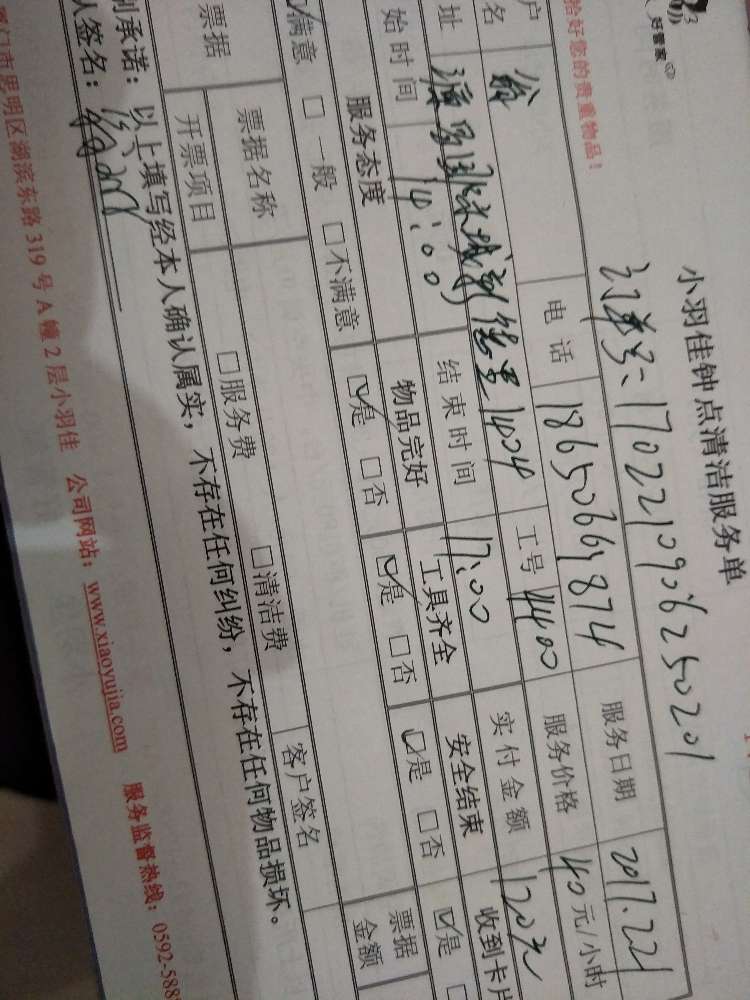 好管家
小羽佳钟点清洁服务单
拾好您的贵重物品！
订单号：1702210906250201
户名 电话 18650669874 服务日期 2017.2.21
服务价格 40元/小时
址 1404 工号 4400 实付金额 120元
始时间 14:00 结束时间 17:00
服务态度 物品完好 工具齐全 安全结束 收到卡片
☑满意 □一般 □不满意 ☑是 □否 ☑是 □否 ☑是 □否 ☑是
票据 票据名称 □服务费 □清洁费 客户签名 票据金额
开票项目
别承诺：以上填写经本人确认属实，不存在任何纠纷，不存在任何物品损坏。
人签名：
厦门市思明区湖滨东路319号A幢2层小羽佳 公司网站：www.xiaoyujia.com 服务监督热线：0592-588